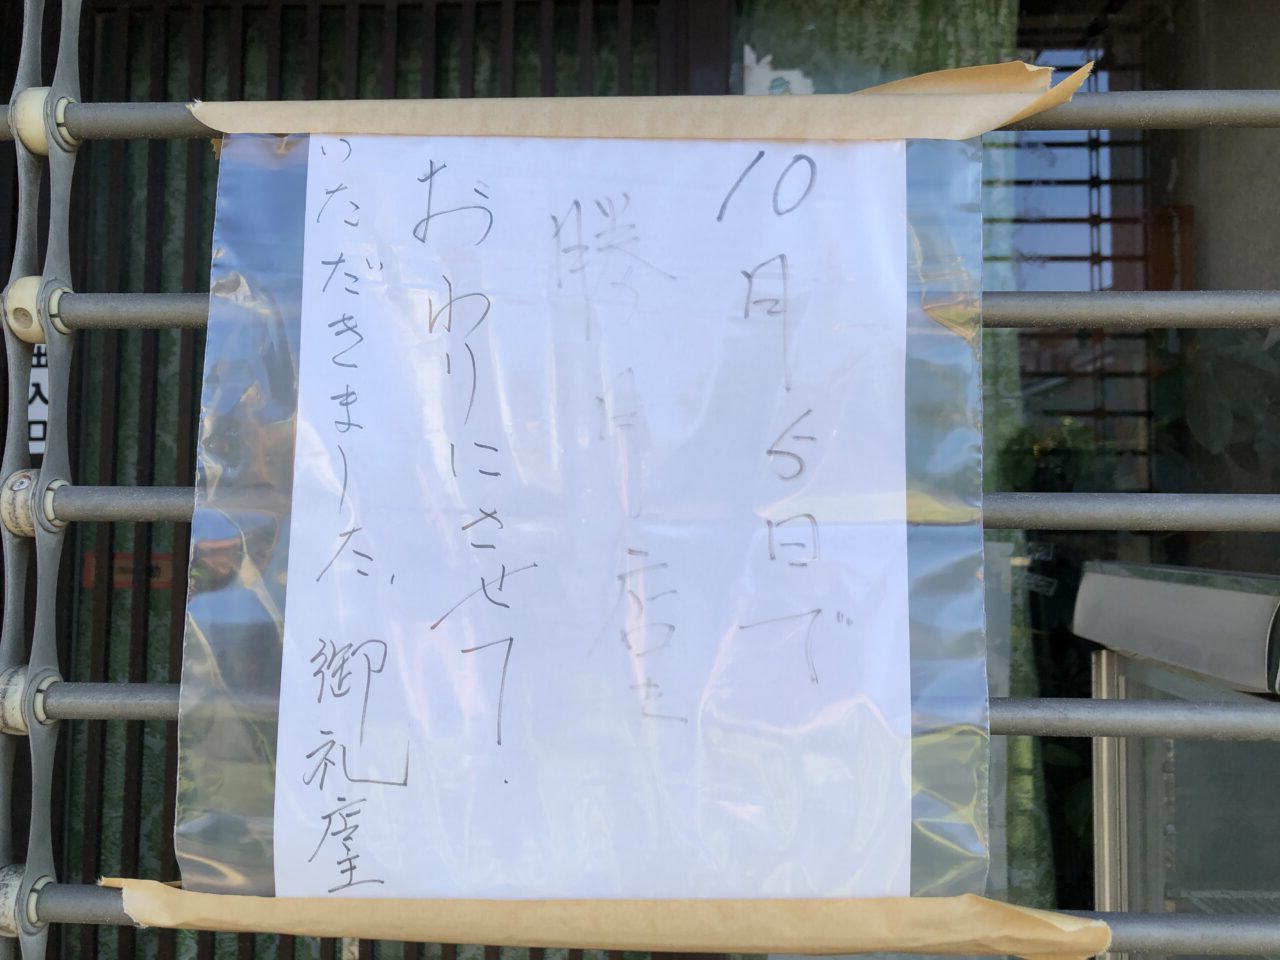 10月5日で
勝 店を
おわりにさせて
いただきました、御礼店主
入口